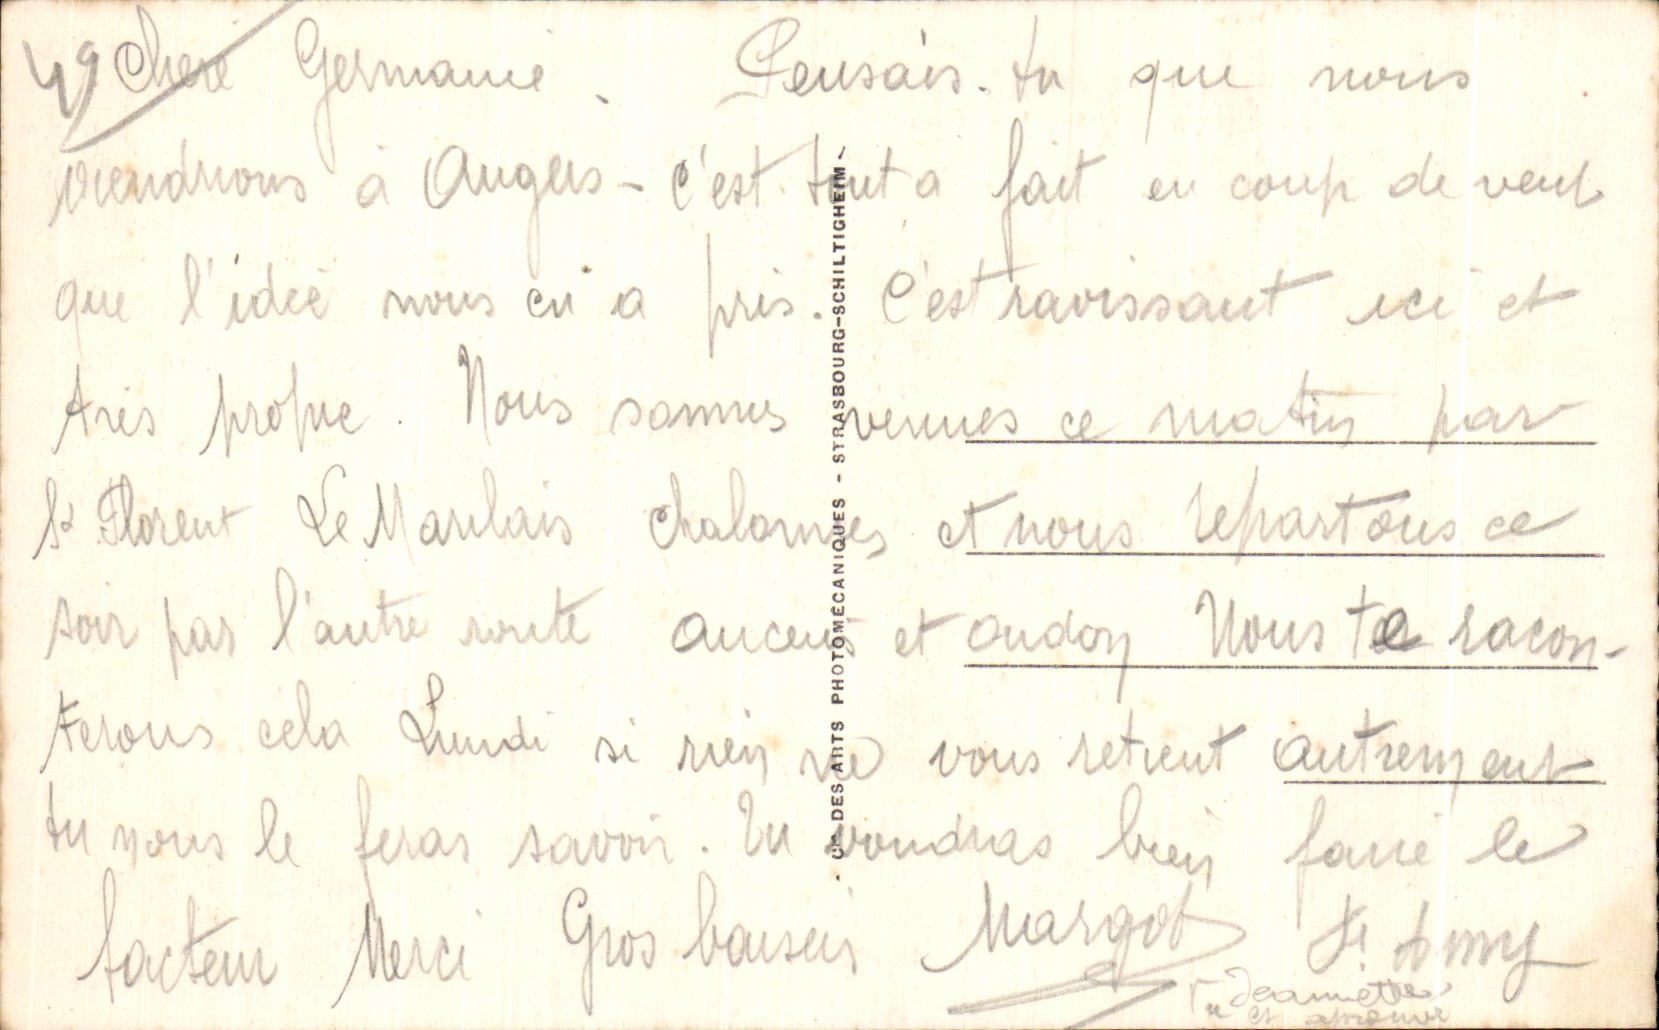 49 Chère Germaine. Pensais-tu que nous
viendrions à Angers - c'est tout a fait en coup de vent
que l'idée nous en a pris. C'est ravissant ici et
très propre. Nous sommes venues ce matin par
St Florent Le Marilais Chalonnes et nous repartons ce
soir par l'autre route ancenis et oudon Nous te racon-
terons cela Lundi si rien ne vous retient autrement
tu nous le feras savoir. Tu voudras bien faire le
facteur Merci Gros baisers Margot
Jeannette
et
Cie DES ARTS PHOTOMÉCANIQUES - STRASBOURG-SCHILTIGHEIM